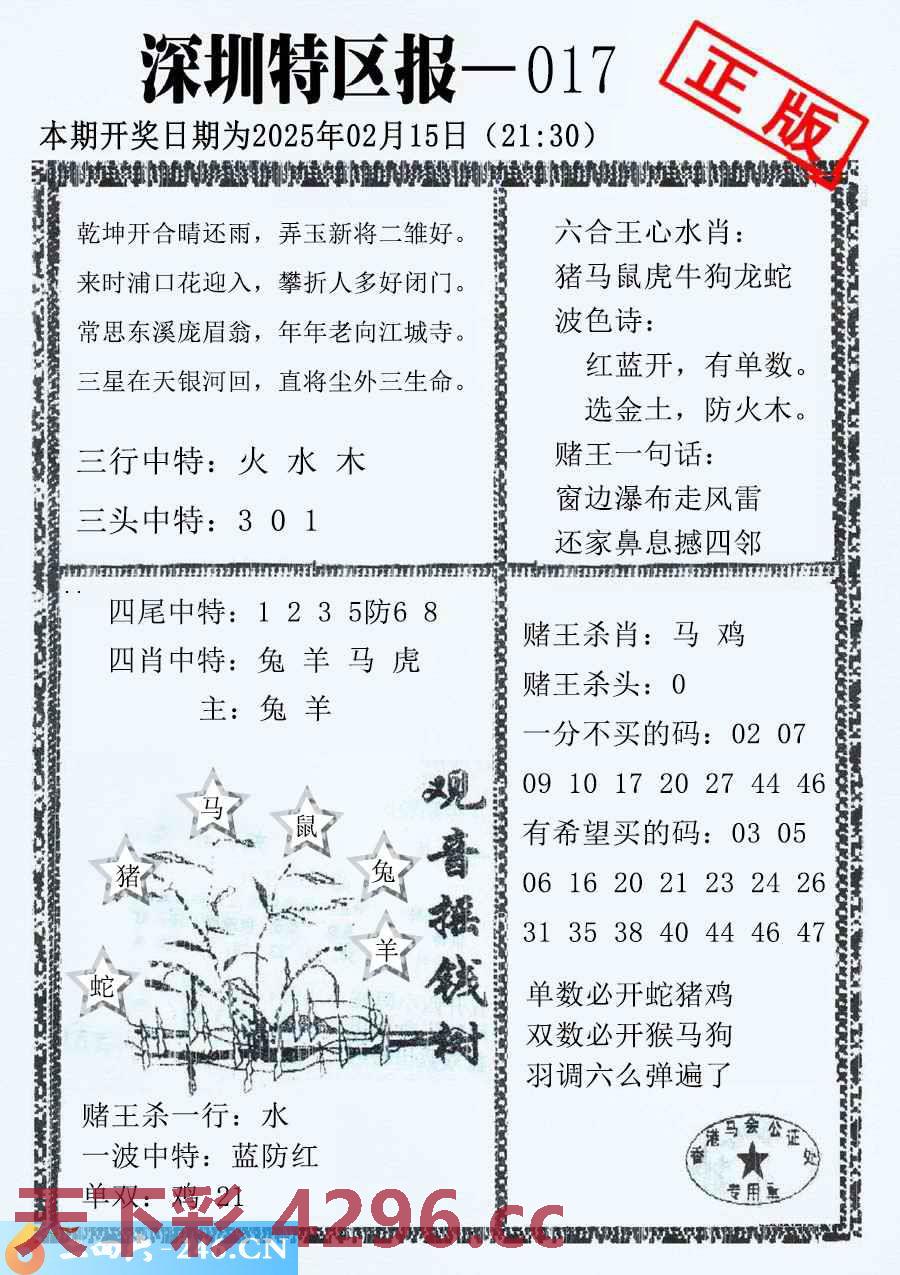 深圳特区报—017
正版
本期开奖日期为2025年02月15日（21:30）
乾坤开合晴还雨，弄玉新将二雏好。
来时浦口花迎入，攀折人多好闭门。
常思东溪庞眉翁，年年老向江城寺。
三星在天银河回，直将尘外三生命。
三行中特：火 水 木
三头中特：3 0 1
六合王心水肖：
猪马鼠虎牛狗龙蛇
波色诗：
红蓝开，有单数。
选金土，防火木。
赌王一句话：
窗边瀑布走风雷
还家鼻息撼四邻
四尾中特：1 2 3 5防6 8
四肖中特：兔 羊 马 虎
主：兔 羊
马
鼠
猪
兔
羊
蛇
观音摇钱树
赌王杀一行：水
一波中特：蓝防红
单双：鸡 21
赌王杀肖：马 鸡
赌王杀头：0
一分不买的码：02 07
09 10 17 20 27 44 46
有希望买的码：03 05
06 16 20 21 23 24 26
31 35 38 40 44 46 47
单数必开蛇猪鸡
双数必开猴马狗
羽调六么弹遍了
香港马会公证处
专用章
天下彩 4296.cc